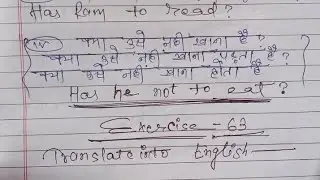 Has Ram to read?
(iv) क्या उसे नहीं खाना है?
क्या उसे नहीं खाना पड़ता है?
क्या उसे नहीं खाना होता है?
Has he not to eat?
Exercise - 63
Translate into English